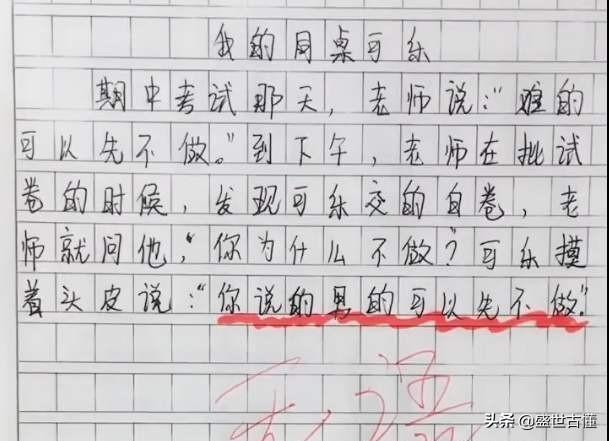 我的同桌可乐
期中考试那天，老师说："难的
可以先不做。"到下午，老师在批试
卷的时候，发现可乐交的白卷，老
师就问他，"你为什么不做？可乐摸
着头皮说："你说的男的可以先不做"
头条 @盛世古懂